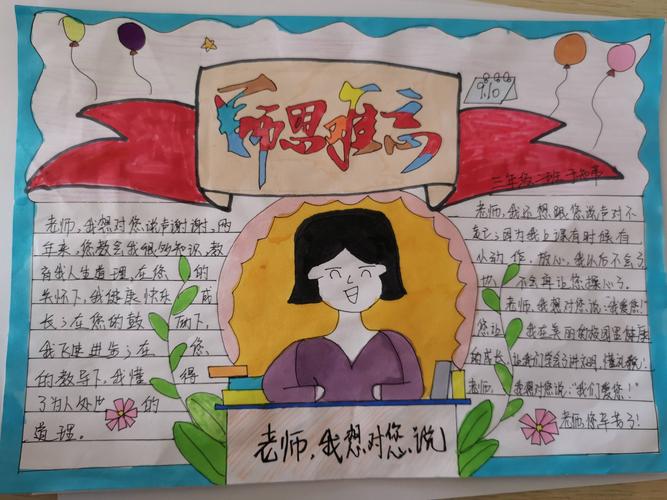 师恩难忘
9.10
三年级二班
老师,我想对您说声谢谢,两
年来,您教会我很多知识,教
育我人生道理,在您的
关怀下,我健康快乐成
长;在您的鼓励下,
我飞速进步;在您
的教导下,我懂得
了为人处世的
道理。
老师,我还想跟您说声对不
起;因为我上课有时候有
小动作,放心,我以后不会了
也不会再让您操心了。
老师,我想对您说:“我爱您!”
您让我在美丽的校园里健康
的成长,让我们学会了讲文明,懂礼貌;
老师,我想对您说:“我们爱您!”
老师,您辛苦了!
老师,我想对您说